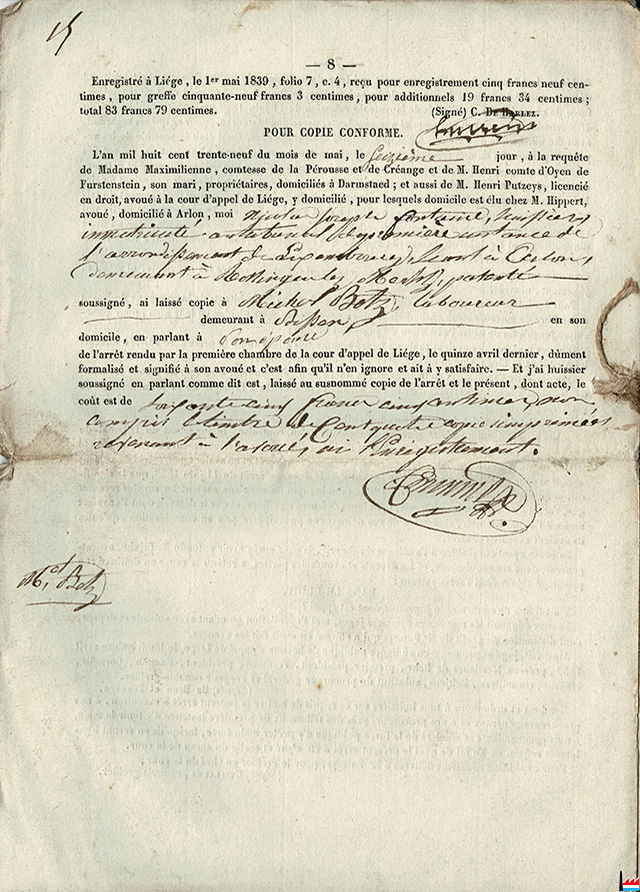 15
— 8 —
Enregistré à Liége, le 1er mai 1839, folio 7, c. 4, reçu pour enregistrement cinq francs neuf cen-
times, pour greffe cinquante-neuf francs 3 centimes, pour additionnels 19 francs 34 centimes;
total 83 francs 79 centimes. (Signé) C. De
POUR COPIE CONFORME.
L'an mil huit cent trente-neuf du mois de mai, le seizième jour, à la requête
de Madame Maximilienne, comtesse de la Pérousse et de Créange et de M. Henri comte d'Oyen de
Furstenstein, son mari, propriétaires, domiciliés à Darmstaed; et aussi de M. Henri Putzeys, licencié
en droit, avoué à la cour d'appel de Liége, y domicilié, pour lesquels domicile est élu chez M. Hippert,
avoué, domicilié à Arlon, moi Nicolas Joseph Fontaine, huissier
immatriculé au tribunal de première instance de
l'arrondissement de Luxembourg, séant à Arlon,
demeurant à les Mersch, patenté
soussigné, ai laissé copie à Michel Botz, laboureur
demeurant à en son
domicile, en parlant à son épouse
de l'arrêt rendu par la première chambre de la cour d'appel de Liége, le quinze avril dernier, dûment
formalisé et signifié à son avoué et c'est afin qu'il n'en ignore et ait à y satisfaire. — Et j'ai huissier
soussigné en parlant comme dit est, laissé au susnommé copie de l'arrêt et le présent, dont acte, le
coût est de cinq francs cinq centimes, non
compris le timbre de copie imprimées
revenant à l'avoué, ni l'enregistrement.
Mel Botz